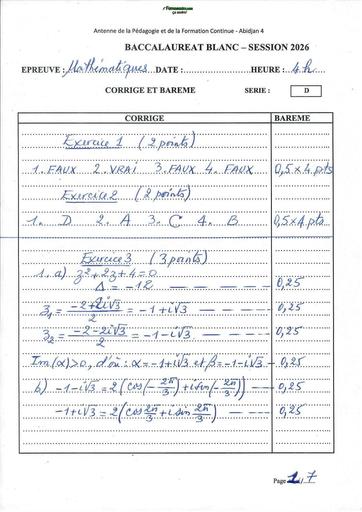 Antenne de la Pédagogie et de la Formation Continue - Abidjan 4
BACCALAUREAT BLANC – SESSION 2026
EPREUVE : Mathématiques DATE : HEURE : 4h
CORRIGE ET BAREME SERIE : D
CORRIGE BAREME
Exercice 1 (2 points)
1. FAUX 2. VRAI 3. FAUX 4. FAUX 0,5 x 4 pts
Exercice 2 (2 points)
1. D 2. A 3. C 4. B 0,5x4 pts
Exercice 3 (3 points)
1. a) z² + 2z + 4 = 0
Δ = -12 0,25
z₁ = (-2+2i√3)/2 = -1+i√3 0,25
z₂ = (-2-2i√3)/2 = -1-i√3 0,25
Im(α)>0, d'où : α = -1+i√3 et β = -1-i√3 0,25
b) -1-i√3 = 2(cos(-2π/3) + i sin(-2π/3)) 0,25
-1+i√3 = 2(cos 2π/3 + i sin 2π/3) 0,25
Page 1 / 7